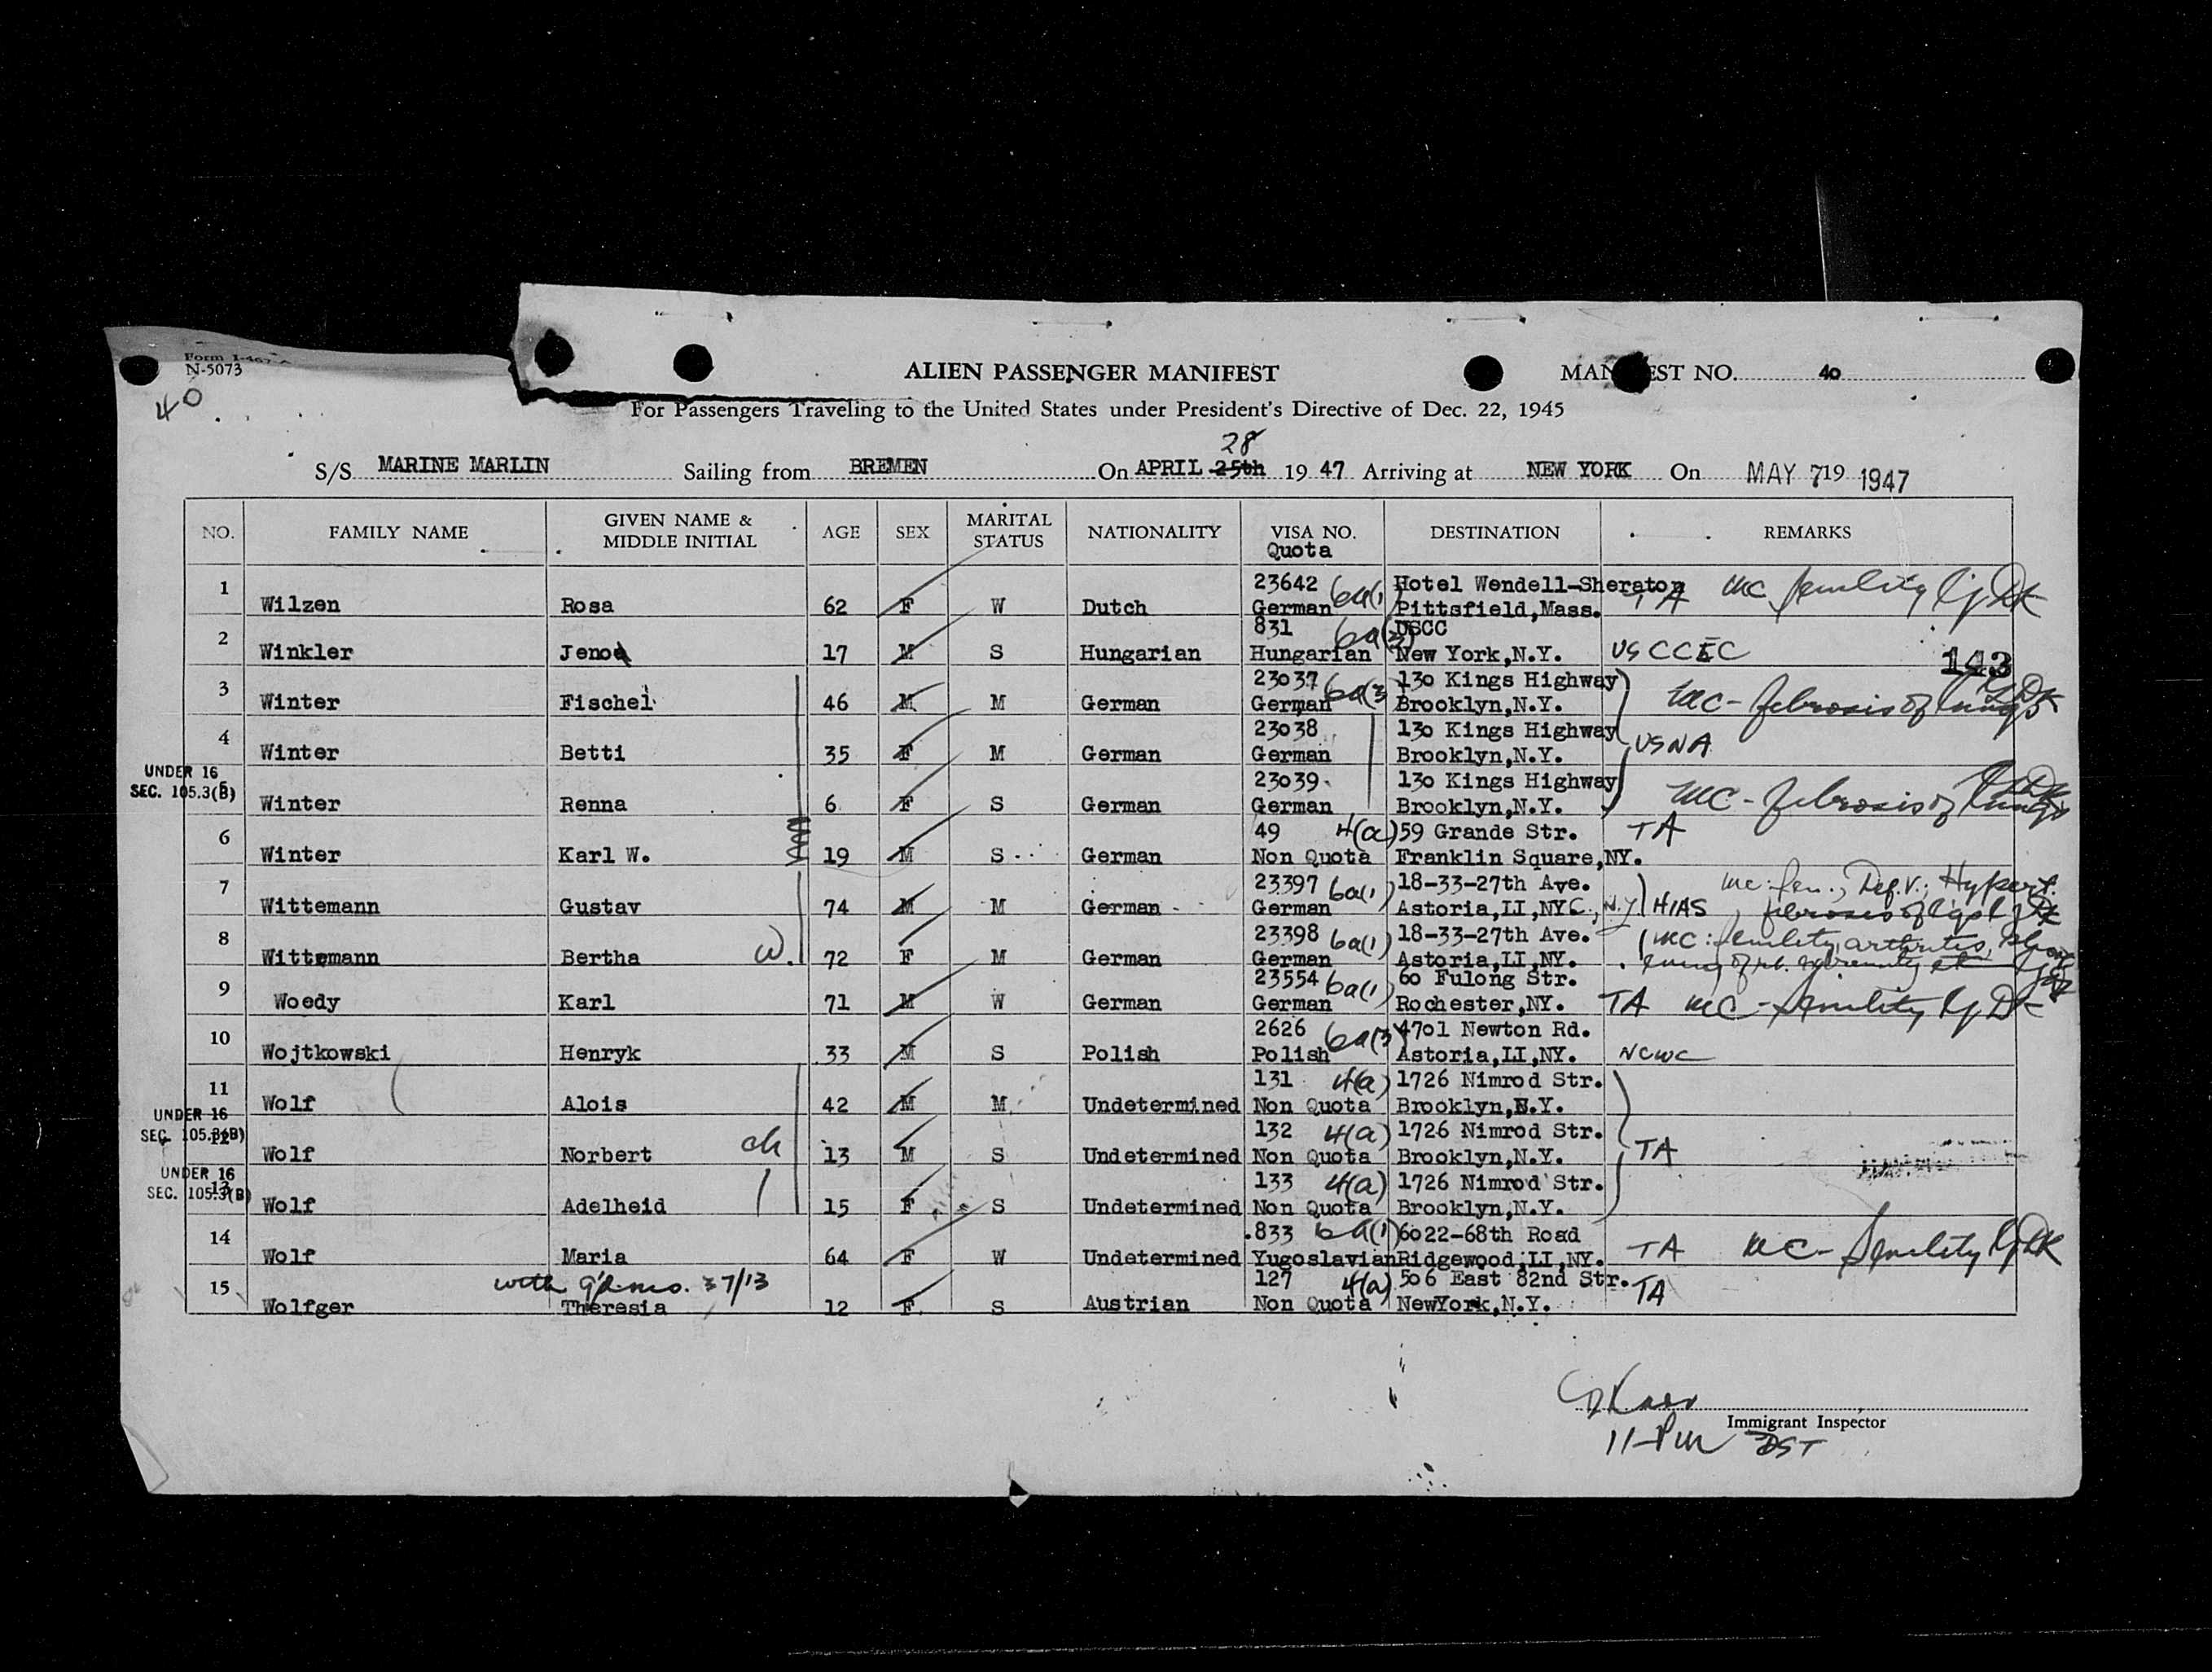 Form I-467-A
N-5073
40
ALIEN PASSENGER MANIFEST
MANIFEST NO. 40
For Passengers Traveling to the United States under President's Directive of Dec. 22, 1945
28
S/S MARINE MARLIN Sailing from BREMEN On APRIL 25th 19 47 Arriving at NEW YORK On MAY 7 19 1947
NO. FAMILY NAME GIVEN NAME & MIDDLE INITIAL AGE SEX MARITAL STATUS NATIONALITY VISA NO. Quota DESTINATION REMARKS
1 23642 6a(1) Hotel Wendell-Sheraton
Wilzen Rosa 62 F W Dutch German Pittsfield,Mass. TA MC Senility
2 831 6a(3) USCC
Winkler Jeno 17 M S Hungarian Hungarian New York,N.Y. USCCEC
143
3 23037 6a(3) 130 Kings Highway
Winter Fischel 46 M M German German Brooklyn,N.Y. MC - fibrosis of lungs
4 23038 130 Kings Highway
Winter Betti 35 F M German German Brooklyn,N.Y. USNA
UNDER 16
SEC. 105.3(B)
5 23039 130 Kings Highway
Winter Renna 6 F S German German Brooklyn,N.Y. MC - fibrosis of lungs
6 49 4(a) 59 Grande Str. TA
Winter Karl W. 19 M S German Non Quota Franklin Square,NY.
7 23397 6a(1) 18-33-27th Ave. MC: Sen., Def. V.; Hypert.
Wittemann Gustav 74 M M German German Astoria,LI,NYC., N.Y. HIAS fibrosis of
8 23398 6a(1) 18-33-27th Ave. MC: senility, arthritis,
Wittemann Bertha W. 72 F M German German Astoria,LI,NY. of rt.
9 23554 6a(1) 60 Fulong Str.
Woedy Karl 71 M W German German Rochester,NY. TA MC - Senility
10 2626 6a(3) 4701 Newton Rd.
Wojtkowski Henryk 33 M S Polish Polish Astoria,LI,NY. NCWC
11 131 4(a) 1726 Nimrod Str.
Wolf Alois 42 M M Undetermined Non Quota Brooklyn,N.Y.
UNDER 16
SEC. 105.3(B)
12 132 4(a) 1726 Nimrod Str.
Wolf Norbert ch 13 M S Undetermined Non Quota Brooklyn,N.Y. TA
UNDER 16
SEC. 105.3(B)
13 133 4(a) 1726 Nimrod Str.
Wolf Adelheid 15 F S Undetermined Non Quota Brooklyn,N.Y.
14 833 6a(1) 6022-68th Road
Wolf Maria 64 F W Undetermined Yugoslavian Ridgewood,LI,NY. TA MC - Senility
15 with 37/13 127 4(a) 506 East 82nd Str. TA
Wolfger Theresia 12 F S Austrian Non Quota NewYork,N.Y.
Immigrant Inspector
11-PM DST